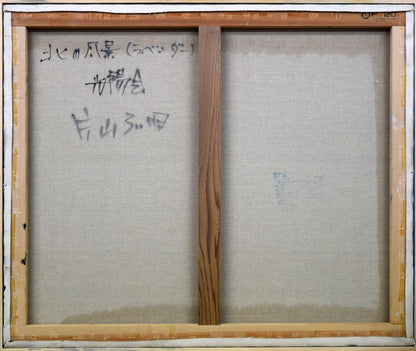 北の風景(ラベンダー)
光陽会
片山弘明
F 20